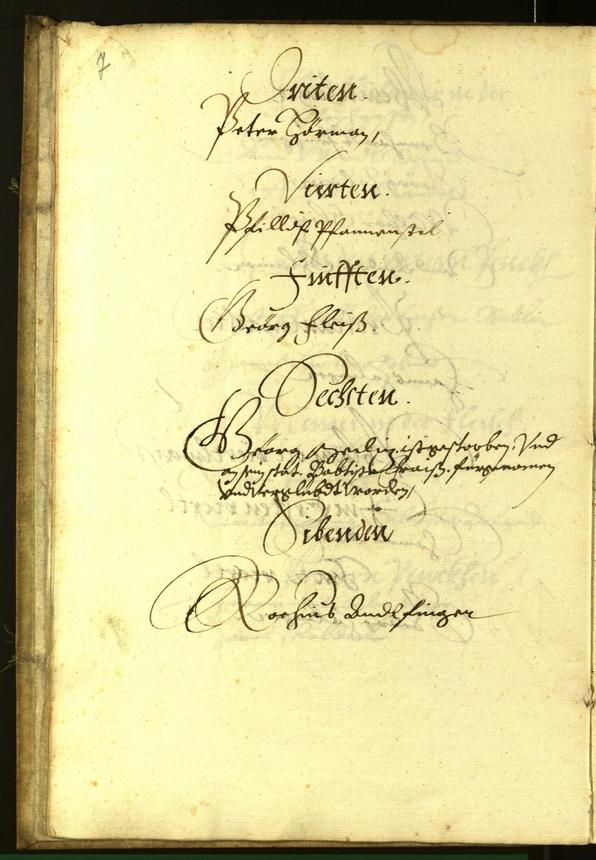 7
Driten
Peter Hörman,
Vierten.
Phillip Pfannenstil
Fünfften.
Geörg Fleiß.
Sechsten.
Geörg ist gestorben, Vnd
an sein stat. Babtista fürgenomen
Vnd verglübdt worden,
Sibenden
Rochius Andlfinger